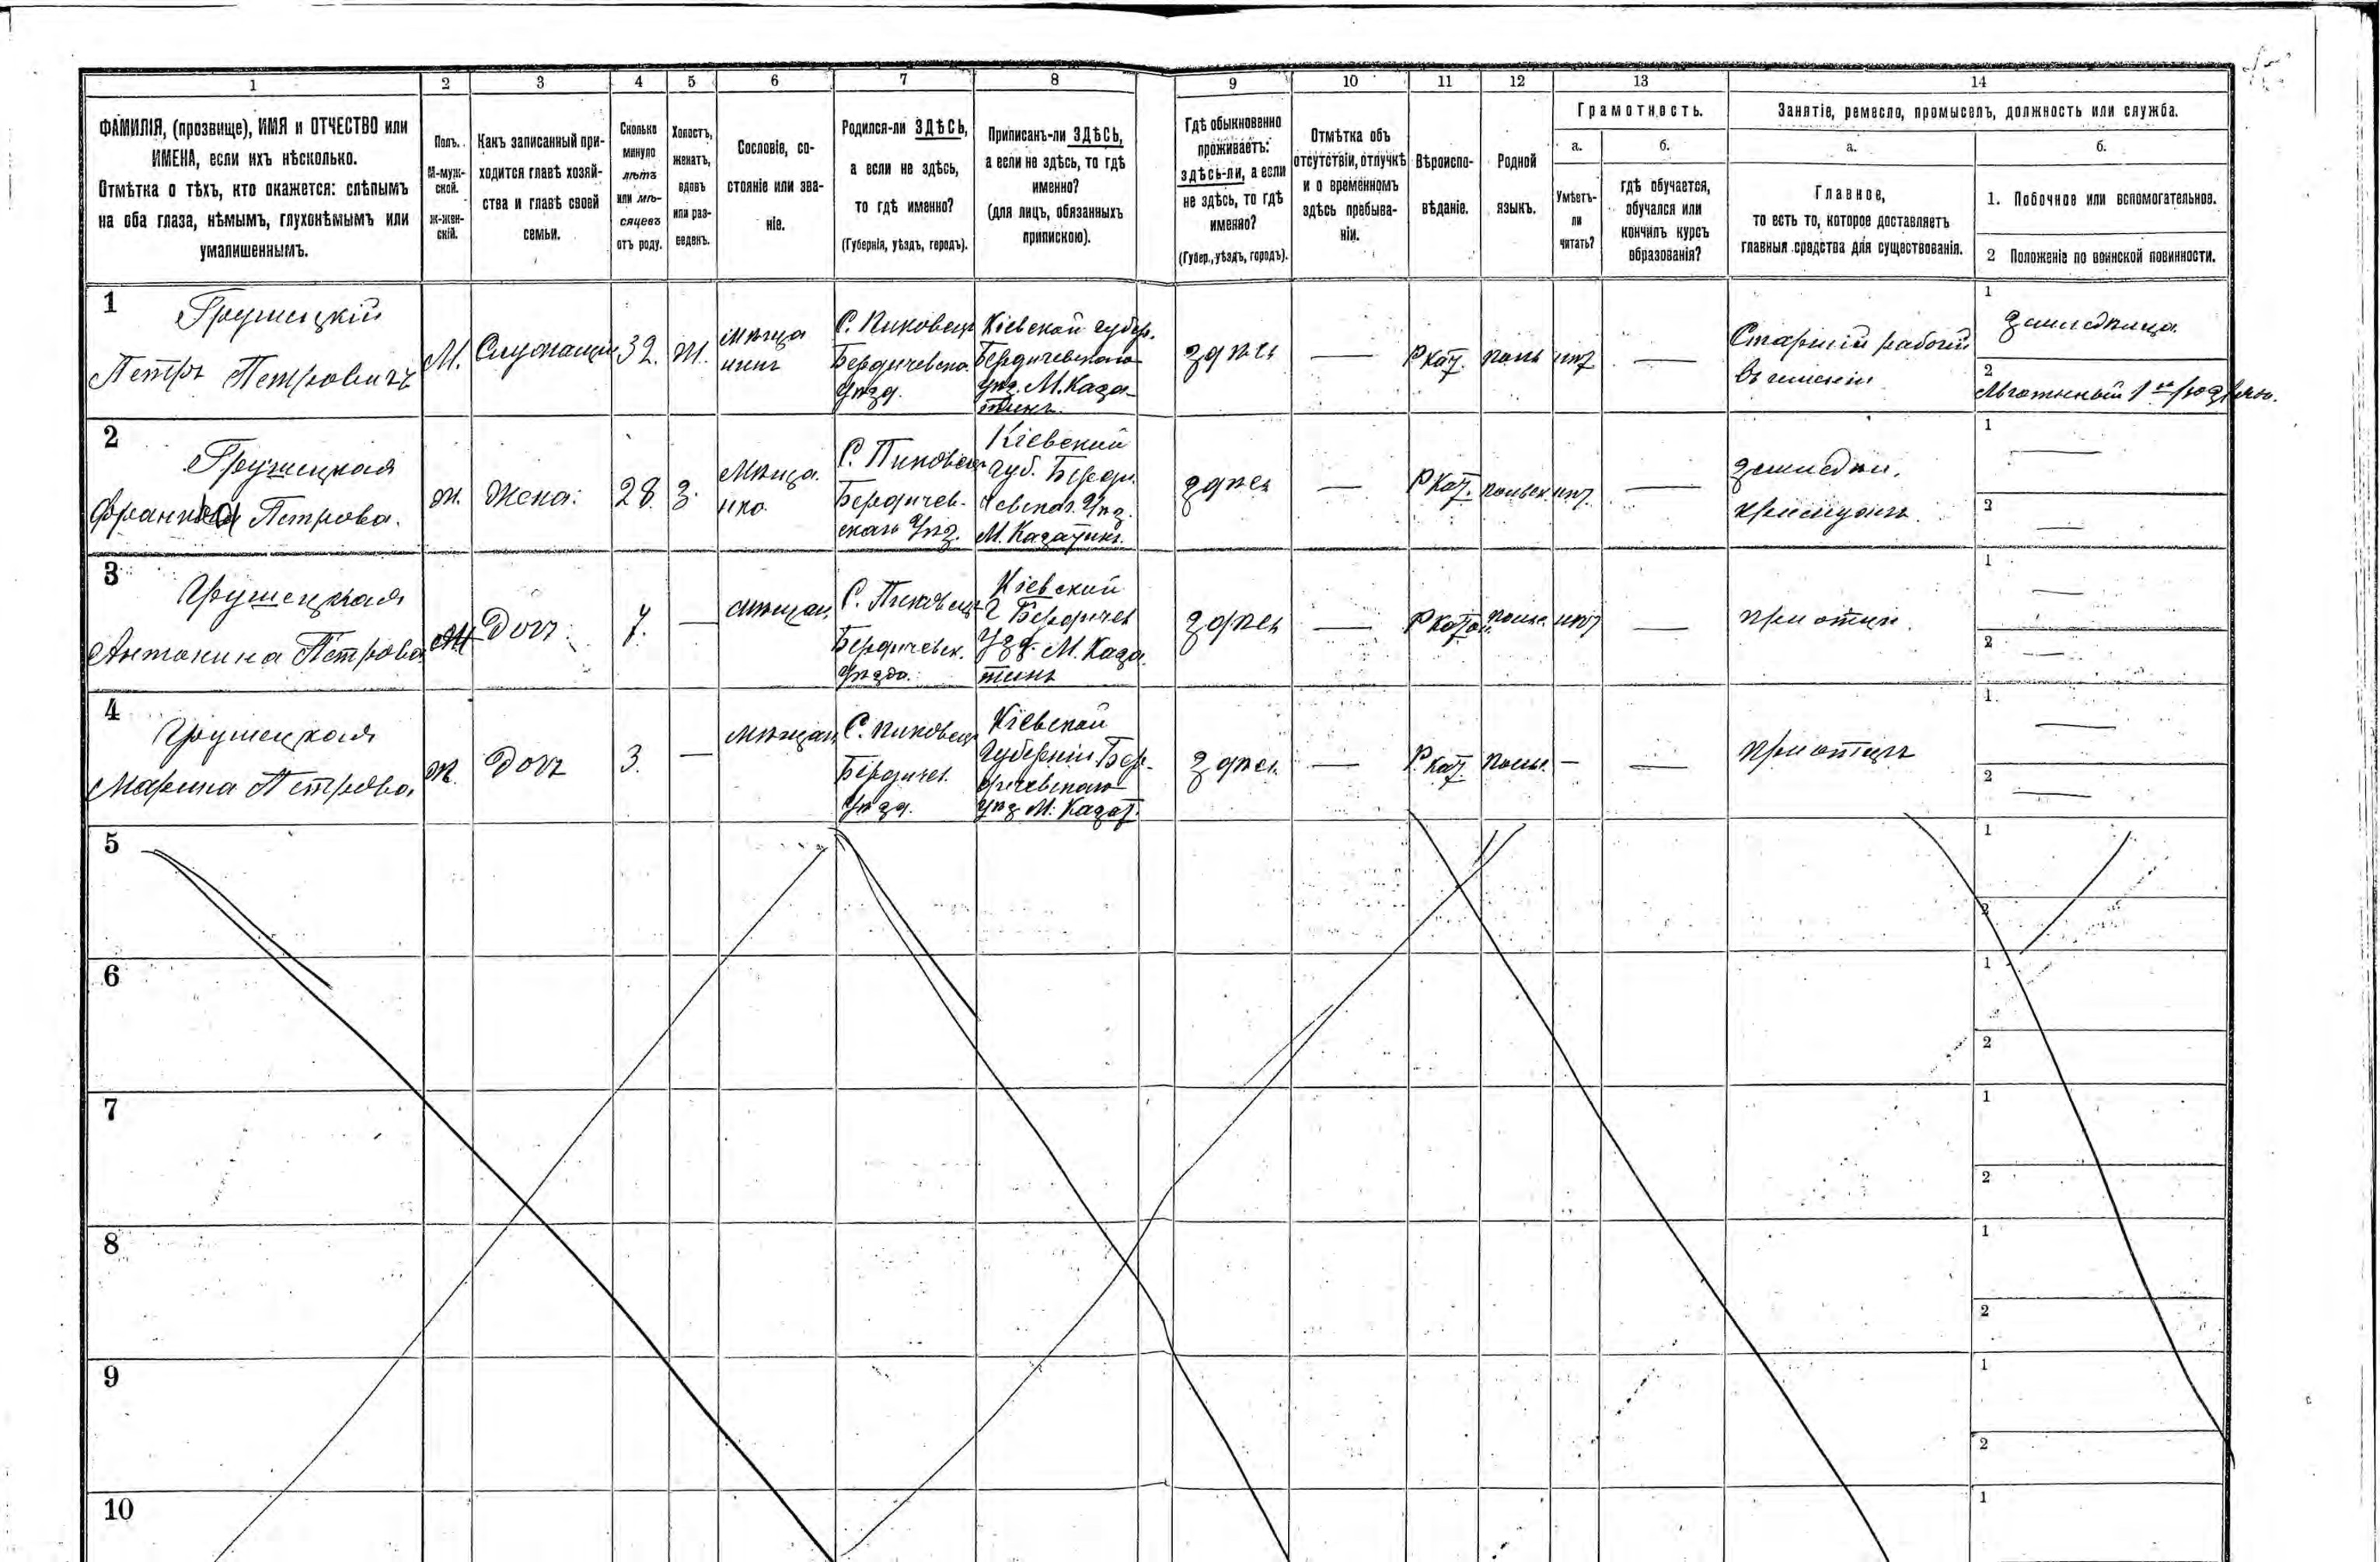 1 2 3 4 5 6 7 8 9 10 11 12 13 14
ФАМИЛІЯ, (прозвище), ИМЯ и ОТЧЕСТВО или
ИМЕНА, если ихъ нѣсколько.
Отмѣтка о тѣхъ, кто окажется: слѣпымъ
на оба глаза, нѣмымъ, глухонѣмымъ или
умалишеннымъ.
Полъ.
М-муж-
ской.
Ж-жен-
скій.
Какъ записанный при-
ходится главѣ хозяй-
ства и главѣ своей
семьи.
Сколько
минуло
лѣтъ
или мѣ-
сяцевъ
отъ роду.
Холостъ,
женатъ,
вдовъ
или раз-
веденъ.
Сословіе, со-
стояніе или зва-
ніе.
Родился-ли ЗДѢСЬ,
а если не здѣсь,
то гдѣ именно?
(Губернія, уѣздъ, городъ).
Приписанъ-ли ЗДѢСЬ,
а если не здѣсь, то гдѣ
именно?
(для лицъ, обязанныхъ
припискою).
Гдѣ обыкновенно
проживаетъ:
здѣсь-ли, а если
не здѣсь, то гдѣ
именно?
(Губер., уѣздъ, городъ).
Отмѣтка объ
отсутствіи, отлучкѣ
и о временномъ
здѣсь пребыва-
ніи.
Вѣроиспо-
вѣданіе.
Родной
языкъ.
Грамотность.
а.
Умѣетъ-
ли
читать?
б.
гдѣ обучается,
обучался или
кончилъ курсъ
образованія?
Занятіе, ремесло, промыселъ, должность или служба.
а.
Главное,
то есть то, которое доставляетъ
главныя средства для существованія.
б.
1. Побочное или вспомогательное.
2 Положеніе по воинской повинности.
1
Грушецкій
Петръ Петровичъ
М.
Служащій
32.
Ж.
мѣща
нинъ
С. Пиковецъ
Бердичевска.
Уѣзд.
Кіевской губер.
Бердичевскаго
Уѣз. М. Каза-
тинъ.
здѣсь
—
Р Кат.
поль
нѣт
—
Старшій рабочій
въ имѣніи
1
2
Льготный 1го разряда.
2
Грушецкая
Франка Петрова.
Ж.
Жена.
28.
З.
Мѣща.
нка.
С. Пиковецъ
Бердичев.
скаго Уѣз.
Кіевской
губ. Берди.
чевскаг. Уѣз.
М. Казатинъ.
здѣсь
—
Р Кат.
польск.
нѣт.
—
при мужѣ
1
—
2
—
3
Грушецкая
Антонина Петрова
Ж
Доч.
7.
—
мѣщан.
С. Пиковецъ
Бердичевск.
Уѣзда.
Кіевской
Г Бердичев
Уѣзд. М. Каза.
тинъ
здѣсь
—
Р Като.
польс.
нѣт
—
при отцѣ.
1
—
2
—
4
Грушецкая
Марина Петрова.
Ж.
Доч
3.
—
мѣщан.
С. Пиковецъ
Бердичев.
Уѣзд.
Кіевской
Губерніи Бер-
дичевскаго
Уѣз М. Казат.
здѣсь
—
Р. Кат.
польс.
—
—
при отцѣ
1.
—
2
—
5
1
2
6
1
2
7
1
2
8
1
2
9
1
2
10
1